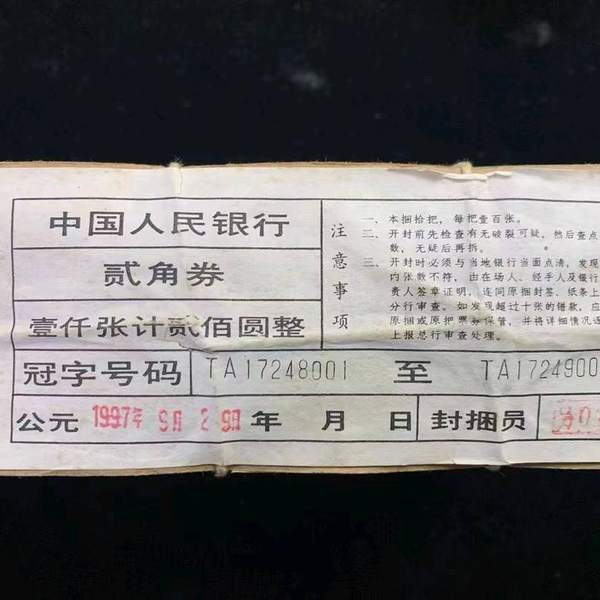 中国人民银行
贰角券
壹仟张计贰佰圆整
注意事项
一、本捆拾把，每把壹百张。
二、开封前先检查有无破裂可疑，然后查点
数，无疑后再拆。
三、开封时必须与当地银行当面点清，发现
内张数不符，由在场人、经手人及银行
责人签章证明，连同原捆封签、纸条上
分行审查。如发现超过十张的错款，应
原捆或原把票券保管，并将详细情况逐
上报总行审查处理。
冠字号码 TA17248001 至 TA1724900
公元 1997年 9月 29日 年 月 日 封捆员